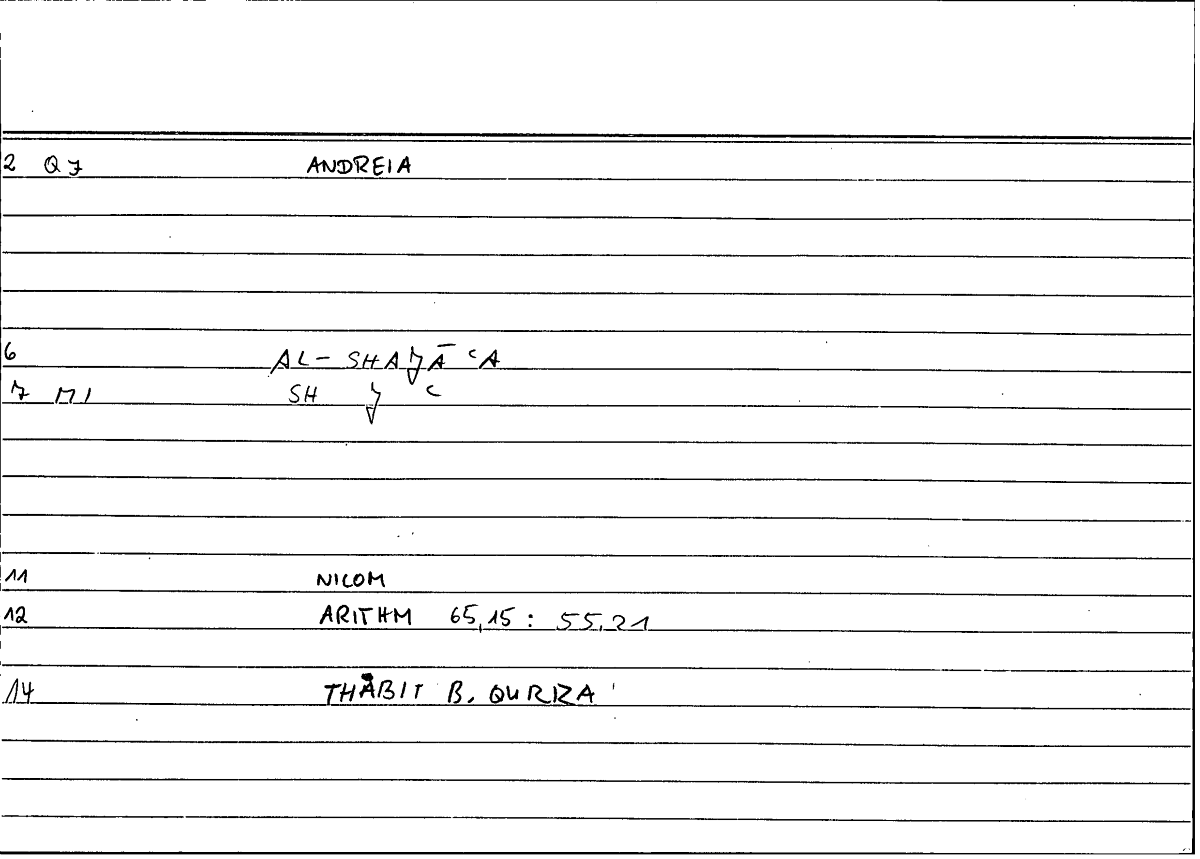 2 Q7 ANDREIA
6 AL- SHAǧĀ ʿA
7 M1 SH ǧ ʿ
11 NICOM
12 ARITHM 65,15 : 55,21
14 THĀBIT B. QURRA